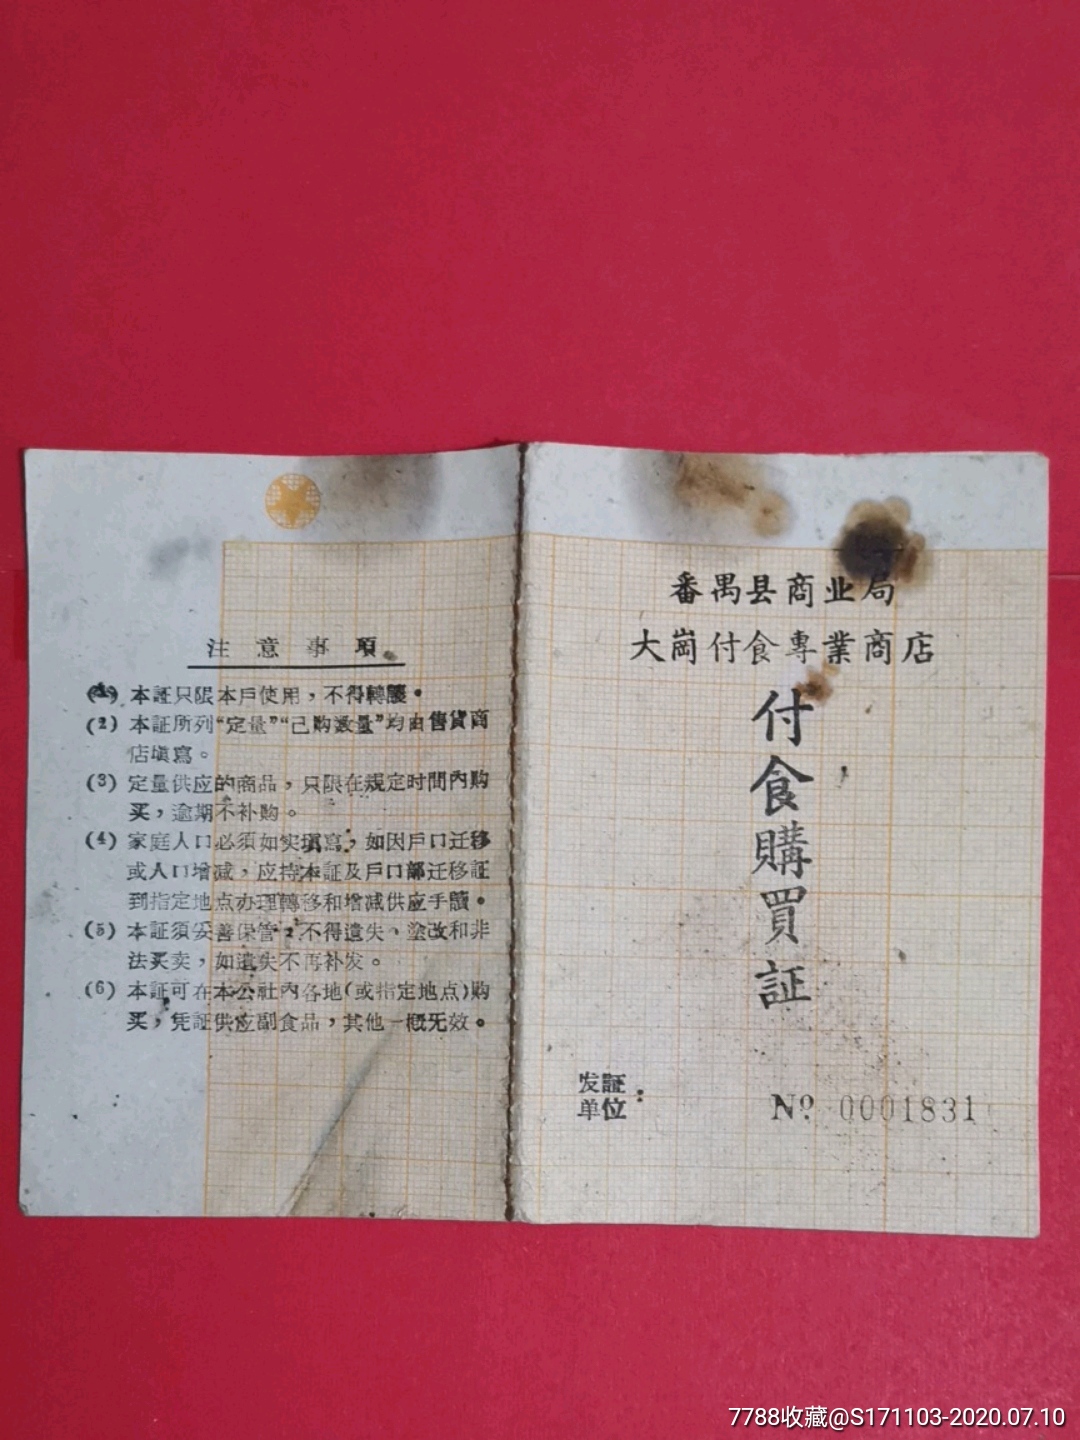 注意事項
(1) 本証只限本戶使用，不得轉讓。
(2) 本証所列“定量”“已购数量”均由售貨商
店塡寫。
(3) 定量供应的商品，只限在规定时間內购
买，逾期不补购。
(4) 家庭人口必須如实塡寫，如因戶口迁移
或人口增减，应持本証及戶口部迁移証
到指定地点办理轉移和增减供应手續。
(5) 本証須妥善保管，不得遺失、塗改和非
法买卖，如遺失不再补发。
(6) 本証可在本公社內各地(或指定地点)购
买，凭証供应副食品，其他一概无效。
番禺县商业局
大崗付食專業商店
付食購買証
发証
单位：
№ 0001831
7788收藏@S171103-2020.07.10